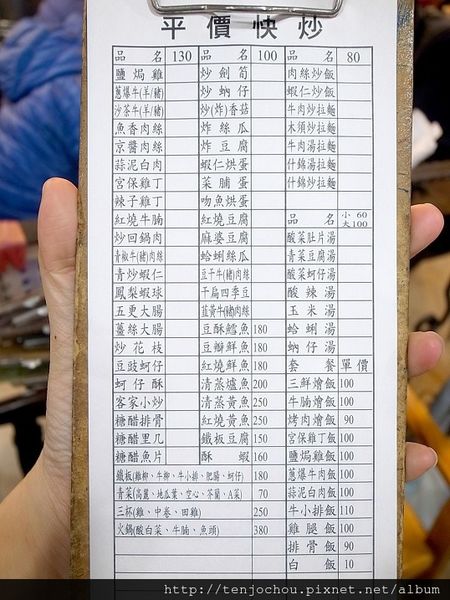 平價快炒
品名 130 品名 100 品名 80
鹽焗雞 炒劍筍 肉絲炒飯
蔥爆牛(羊/豬) 炒蚋仔 蝦仁炒飯
沙茶牛(羊/豬) 炒(炸)香菇 牛肉炒拉麵
魚香肉絲 炸絲瓜 木須炒拉麵
京醬肉絲 炸豆腐 牛肉湯拉麵
蒜泥白肉 蝦仁烘蛋 什錦湯拉麵
宮保雞丁 菜脯蛋 什錦炒拉麵
辣子雞丁 吻魚烘蛋
紅燒牛腩 紅燒豆腐 品名 小60 大100
炒回鍋肉 麻婆豆腐 酸菜肚片湯
青椒牛(豬)肉絲 蛤蜊絲瓜 青菜豆腐湯
青炒蝦仁 豆干牛(豬)肉絲 酸菜蚵仔湯
鳳梨蝦球 干扁四季豆 酸辣湯
五更大腸 韮黃牛(豬)肉絲 玉米湯
薑絲大腸 豆酥鱈魚 180 蛤蜊湯
炒花枝 豆瓣鮮魚 180 蚋仔湯
豆豉蚵仔 紅燒鮮魚 180 套餐 單價
蚵仔酥 清蒸爐魚 200 三鮮燴飯 100
客家小炒 清蒸黃魚 250 牛腩燴飯 100
糖醋排骨 紅燒黃魚 250 烤肉燴飯 90
糖醋里几 鐵板豆腐 150 宮保雞丁飯 100
糖醋魚片 酥蝦 160 鹽焗雞飯 100
鐵板(雞柳、牛柳、牛小排、肥腸、蚵仔) 180 蔥爆牛肉飯 100
青菜(高麗、地瓜葉、空心、芥蘭、A菜) 70 蒜泥白肉飯 100
三杯(雞、中卷、田雞) 250 牛小排飯 110
火鍋(酸白菜、牛腩、魚頭) 380 雞腿飯 100
排骨飯 90
白飯 10
http://tenjochou.pixnet.net/album